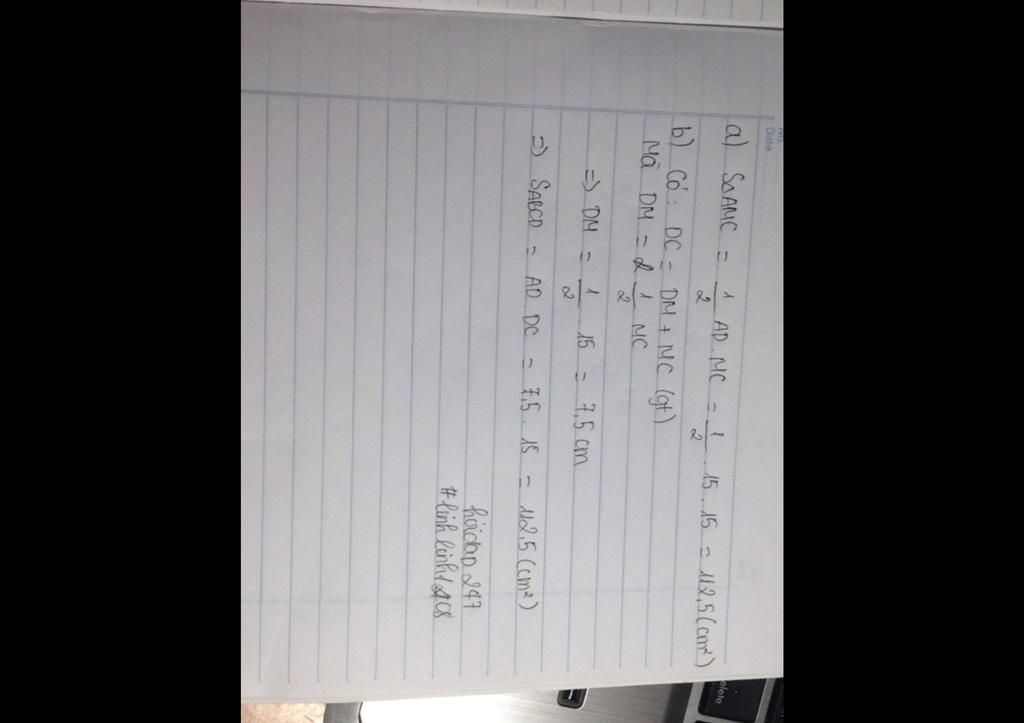 No.
Date
a) SΔAMC = 1/2 AD.MC = 1/2 . 15 . 15 = 112,5 (cm²)
b) Có: DC = DM + MC (gt)
Mà DM = 1/2 MC
=) DM = 1/2 . 15 = 7,5 cm
=) SABCD = AD.DC = 7,5 . 15 = 112,5 (cm²)
hỏidap 247
delete